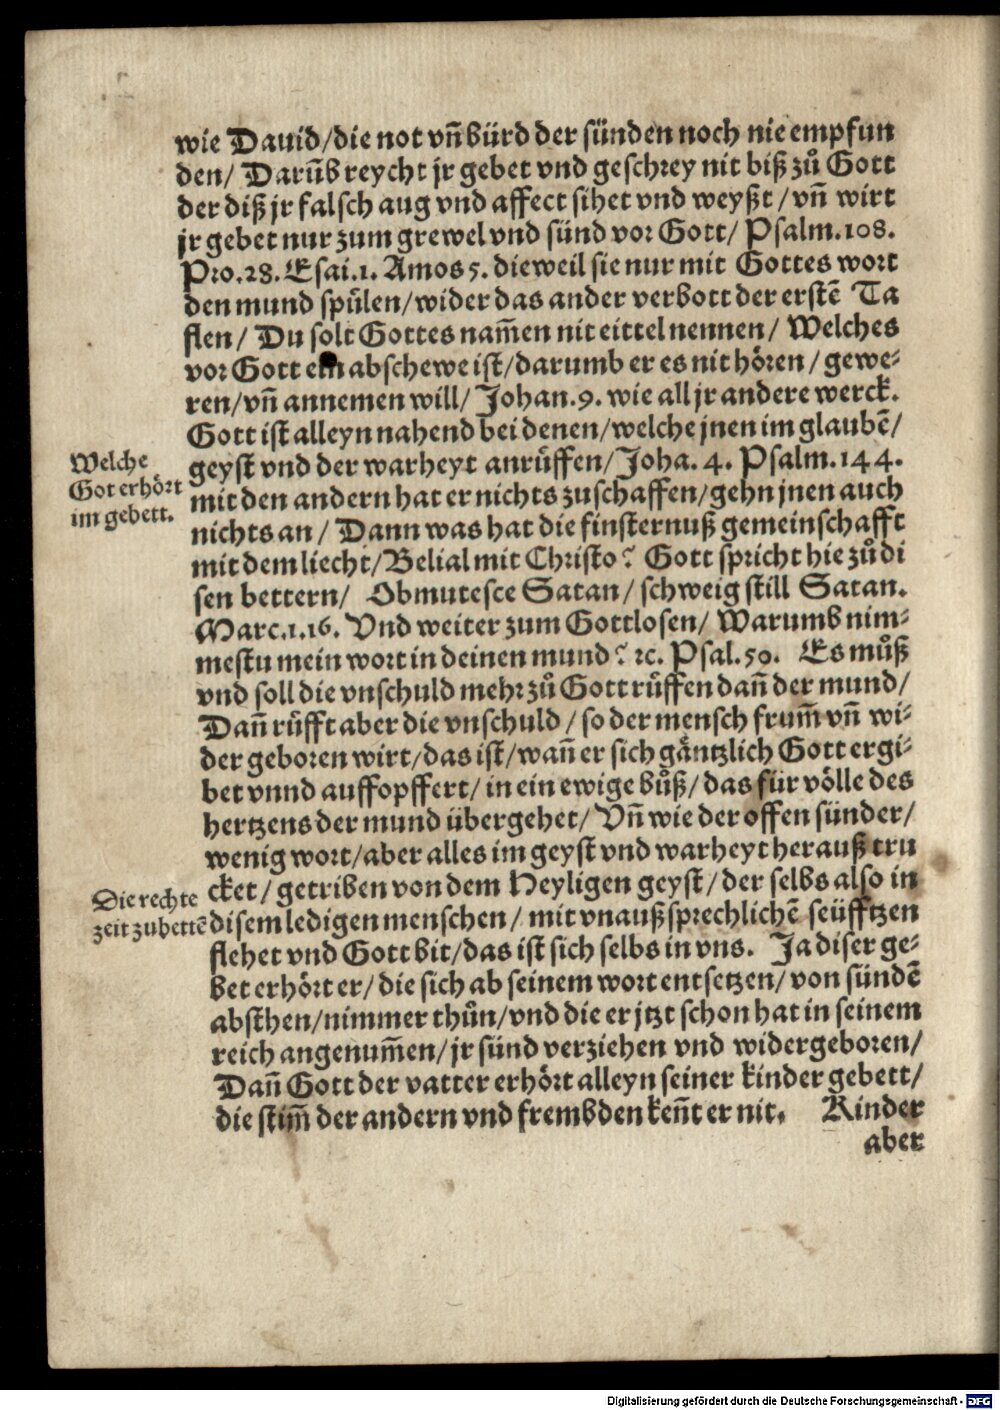 wie Dauid/die not vn̄ bürd der sünden noch nie empfun
den/ Darūb reycht jr gebet vnd geschrey nit biß zů Gott
der diß jr falsch aug vnd affect sihet vnd weyßt/vn̄ wirt
jr gebet nur zum grewel vnd sünd vor Gott/ Psalm.108.
Pro.28. Esai.1. Amos 5. dieweil sie nur mit Gottes wort
den mund spůlen/wider das ander verbott der erstē Ta
flen/ Du solt Gottes nam̄en nit eittel nennen/ Welches
vor Gott ein abschewe ist/darumb er es nit hören/gewe-
ren/vn̄ annemen will/ Johan.9. wie all jr andere werck.
Gott ist alleyn nahend bei denen/welche jnen im glaubē/
Welche
Got erhört
im gebett.
geyst vnd der warheyt anrůffen/Joha. 4. Psalm.144.
mit den andern hat er nichts zuschaffen/gehn jnen auch
nichts an/ Dann was hat die finsternuß gemeinschafft
mit dem liecht/Belial mit Christo? Gott spricht hie zů di
sen bettern/ Obmutesce Satan/schweig still Satan.
Marc.1.16. Vnd weiter zum Gottlosen/ Warumb nim-
mestu mein wort in deinen mund? ꝛc. Psal.50. Es můß
vnd soll die vnschuld mehr zů Gott růffen dan̄ der mund/
Dan̄ růfft aber die vnschuld/so der mensch frum̄ vn̄ wi-
der geboren wirt/das ist/wan̄ er sich gäntzlich Gott ergi-
bet vnnd auffopffert/in ein ewige bůß/das für völle des
hertzens der mund übergehet/ Vn̄ wie der offen sünder/
wenig wort/aber alles im geyst vnd warheyt herauß tru
Die rechte
zeit zubettē
cket/getriben von dem Heyligen geyst/der selbs also in
disem ledigen menschen/mit vnaußsprechlichē seüfftzen
flehet vnd Gott bit/das ist sich selbs in vns. Ja diser ge-
bet erhört er/die sich ab seinem wort entsetzen/von sündē
absthen/nimmer thůn/vnd die er jtzt schon hat in seinem
reich angenum̄en/jr sünd verziehen vnd widergeboren/
Dan̄ Gott der vatter erhört alleyn seiner kinder gebett/
die stim̄ der andern vnd frembden ken̄t er nit. Kinder
aber
Digitalisierung gefördert durch die Deutsche Forschungsgemeinschaft - DFG